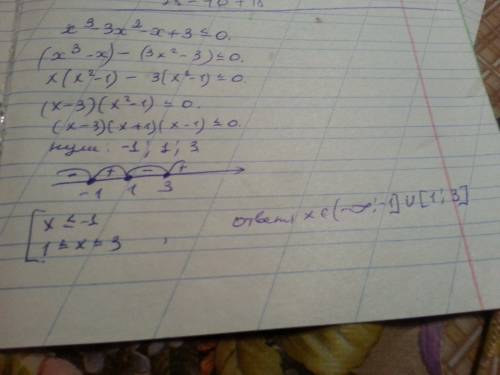 x³-3x²-x+3≤0.
(x³-x)-(3x²-3)≤0.
x(x²-1)-3(x²-1)≤0.
(x-3)(x²-1)≤0.
(x-3)(x+1)(x-1)≤0.
нули: -1; 1; 3
- + - +
-1 1 3
[x≤-1
1≤x≤3 ,
ответ: x∈(-∞;-1]∪[1;3]